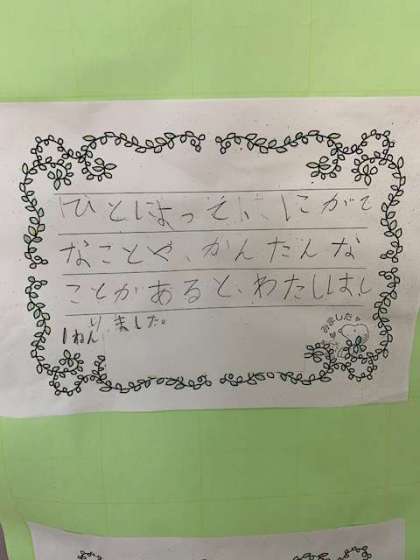 ひとによって、にがて
なことや、かんたんな
ことがあると、わたしはし
りました。
1ねん
みました